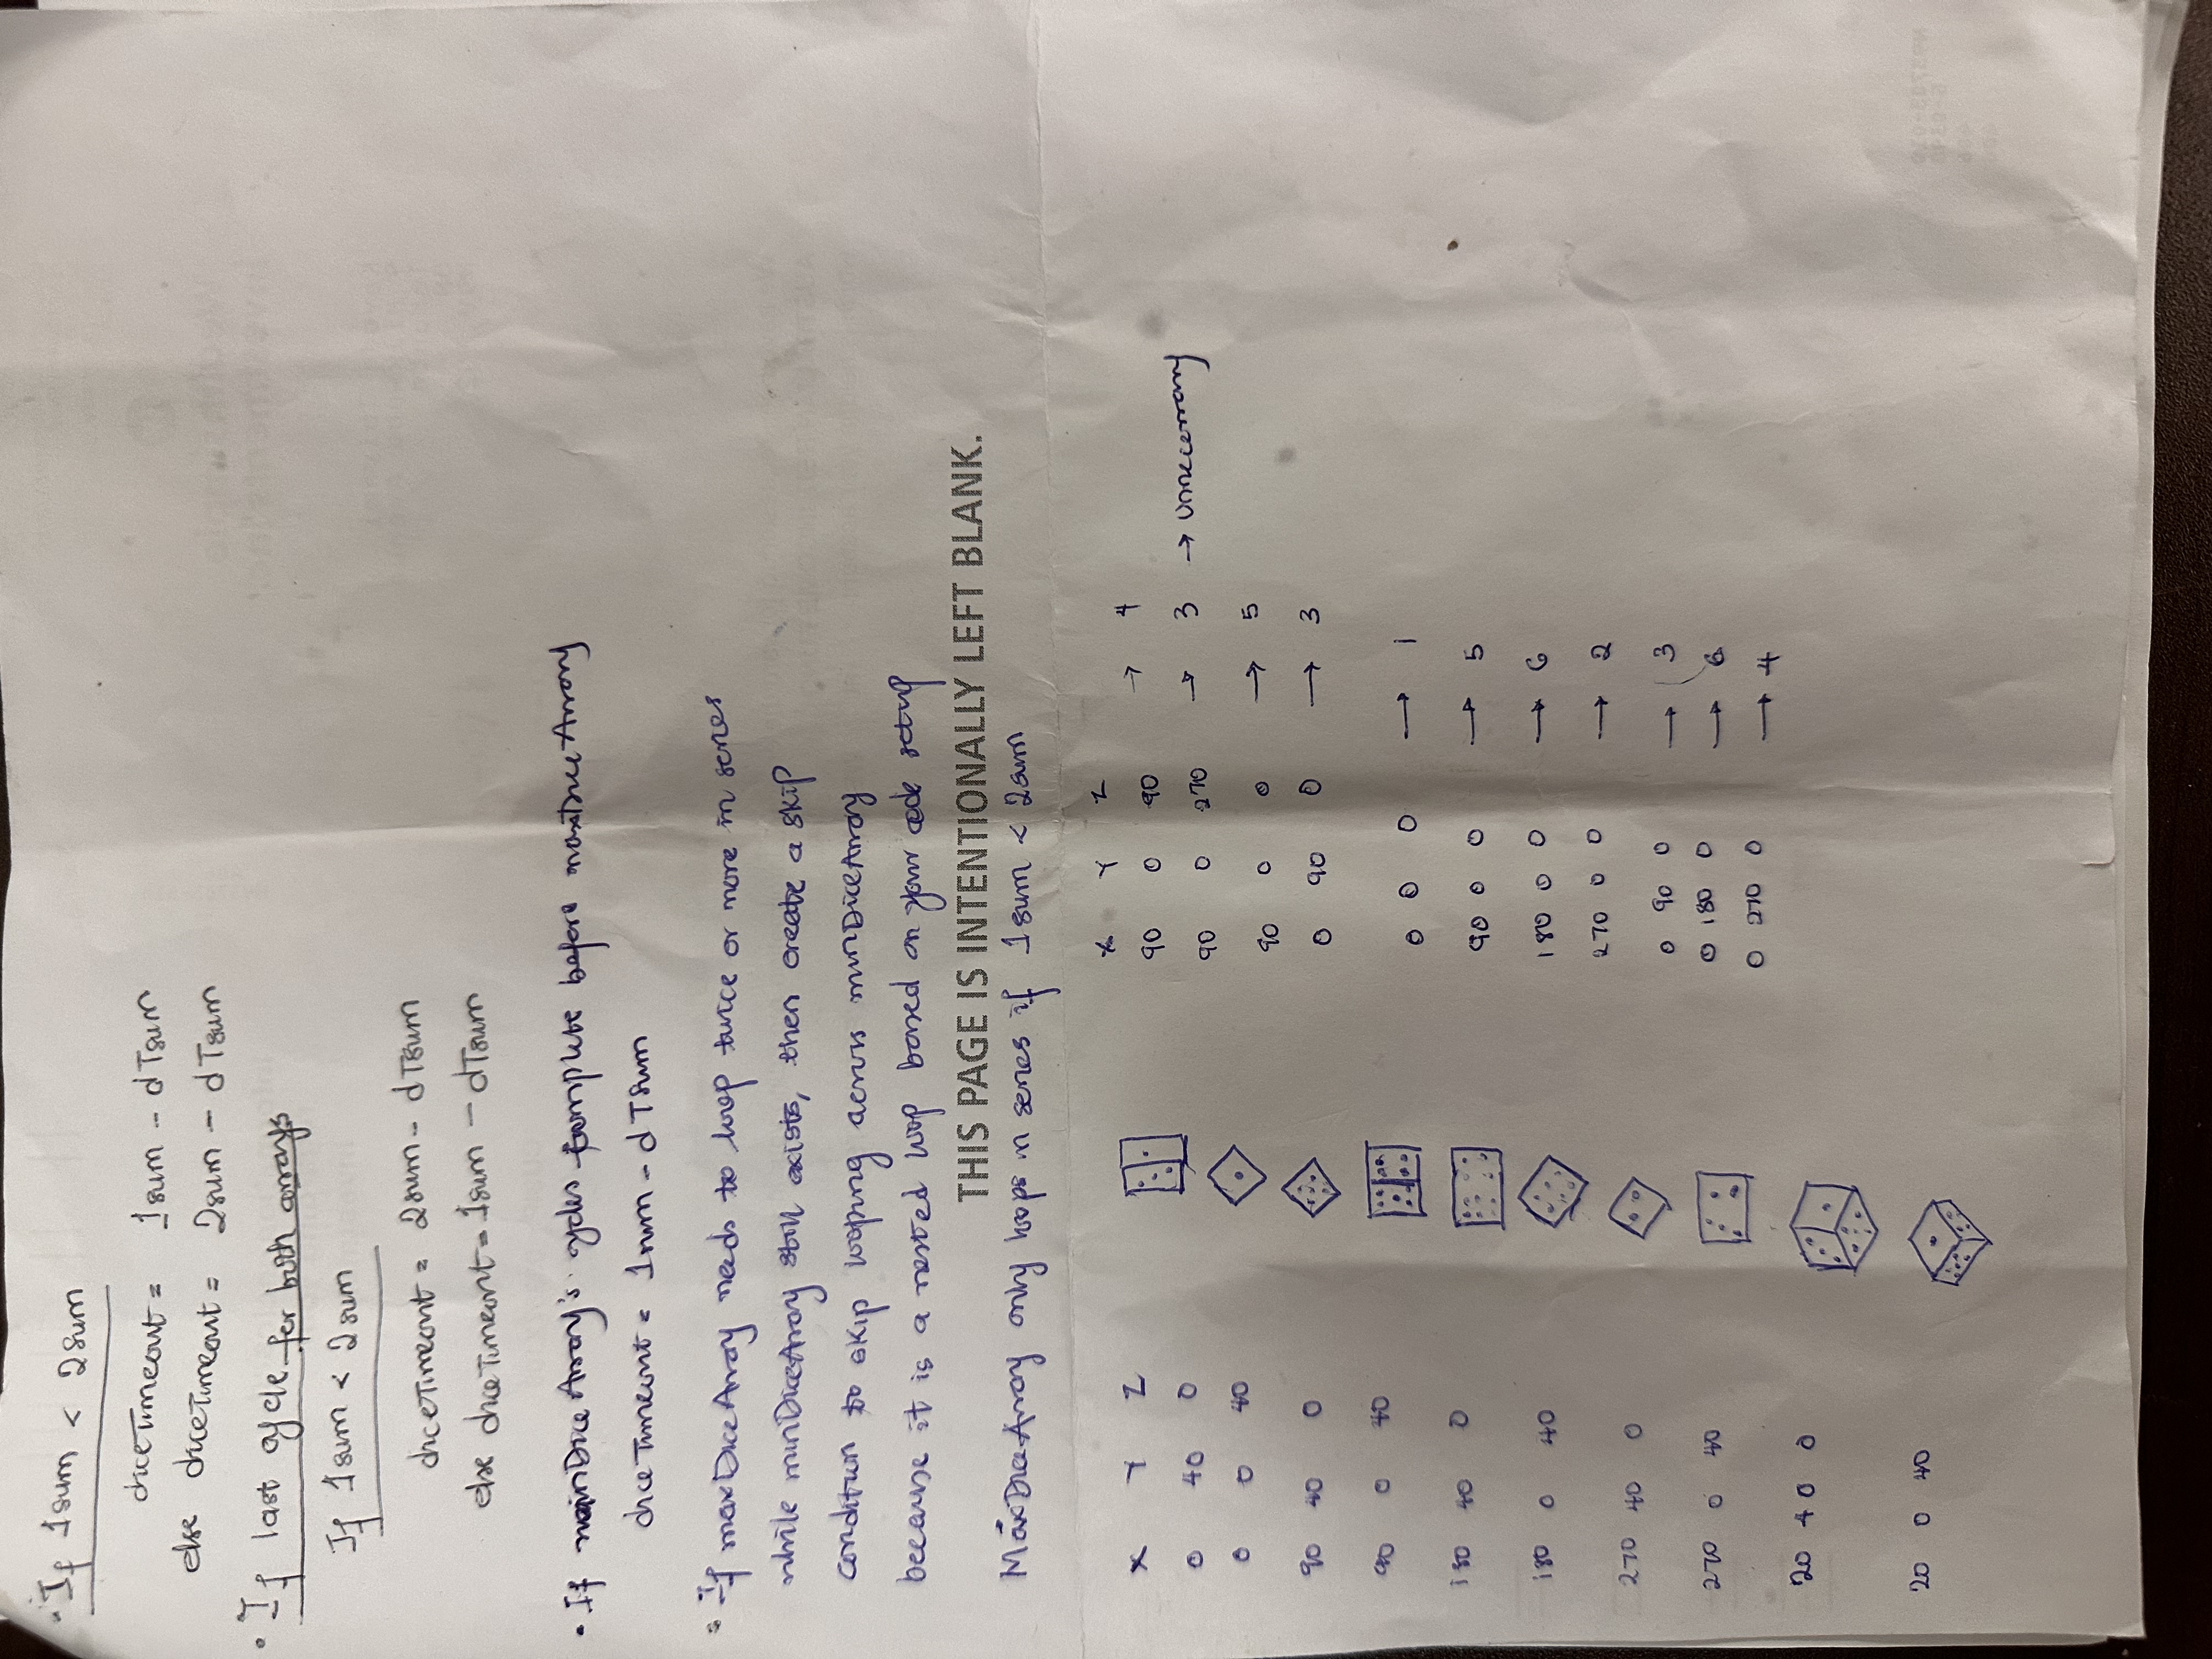 • If 1sum < 2sum
diceTimeout = 1sum - dTsum
else diceTimeout = 2sum - dTsum
• If last cycle for both arrays
If 1sum < 2sum
diceTimeout = 2sum - dTsum
else diceTimeout = 1sum - dTsum
• If minDiceArray's cycles complete before maxDiceArray
diceTimeout = 1sum - dTsum
• If maxDiceArray needs to loop twice or more in series
while minDiceArray still exists, then create a skip
condition to skip looping across minDiceArray
because it is a nested loop based on your code setup
THIS PAGE IS INTENTIONALLY LEFT BLANK.
MaxDiceArray only loops in series if 1sum < 2sum
X Y Z
0 40 0
0 0 40
90 40 0
90 0 40
180 40 0
180 0 40
270 40 0
270 0 40
20 40 0
20 0 40
X Y Z
90 0 90 → 4
90 0 270 → 3 → unnecessary
90 0 0 → 5
0 90 0 → 3
0 0 0 → 1
90 0 0 → 5
180 0 0 → 6
270 0 0 → 2
0 90 0 → 3
0 180 0 → 6
0 270 0 → 4